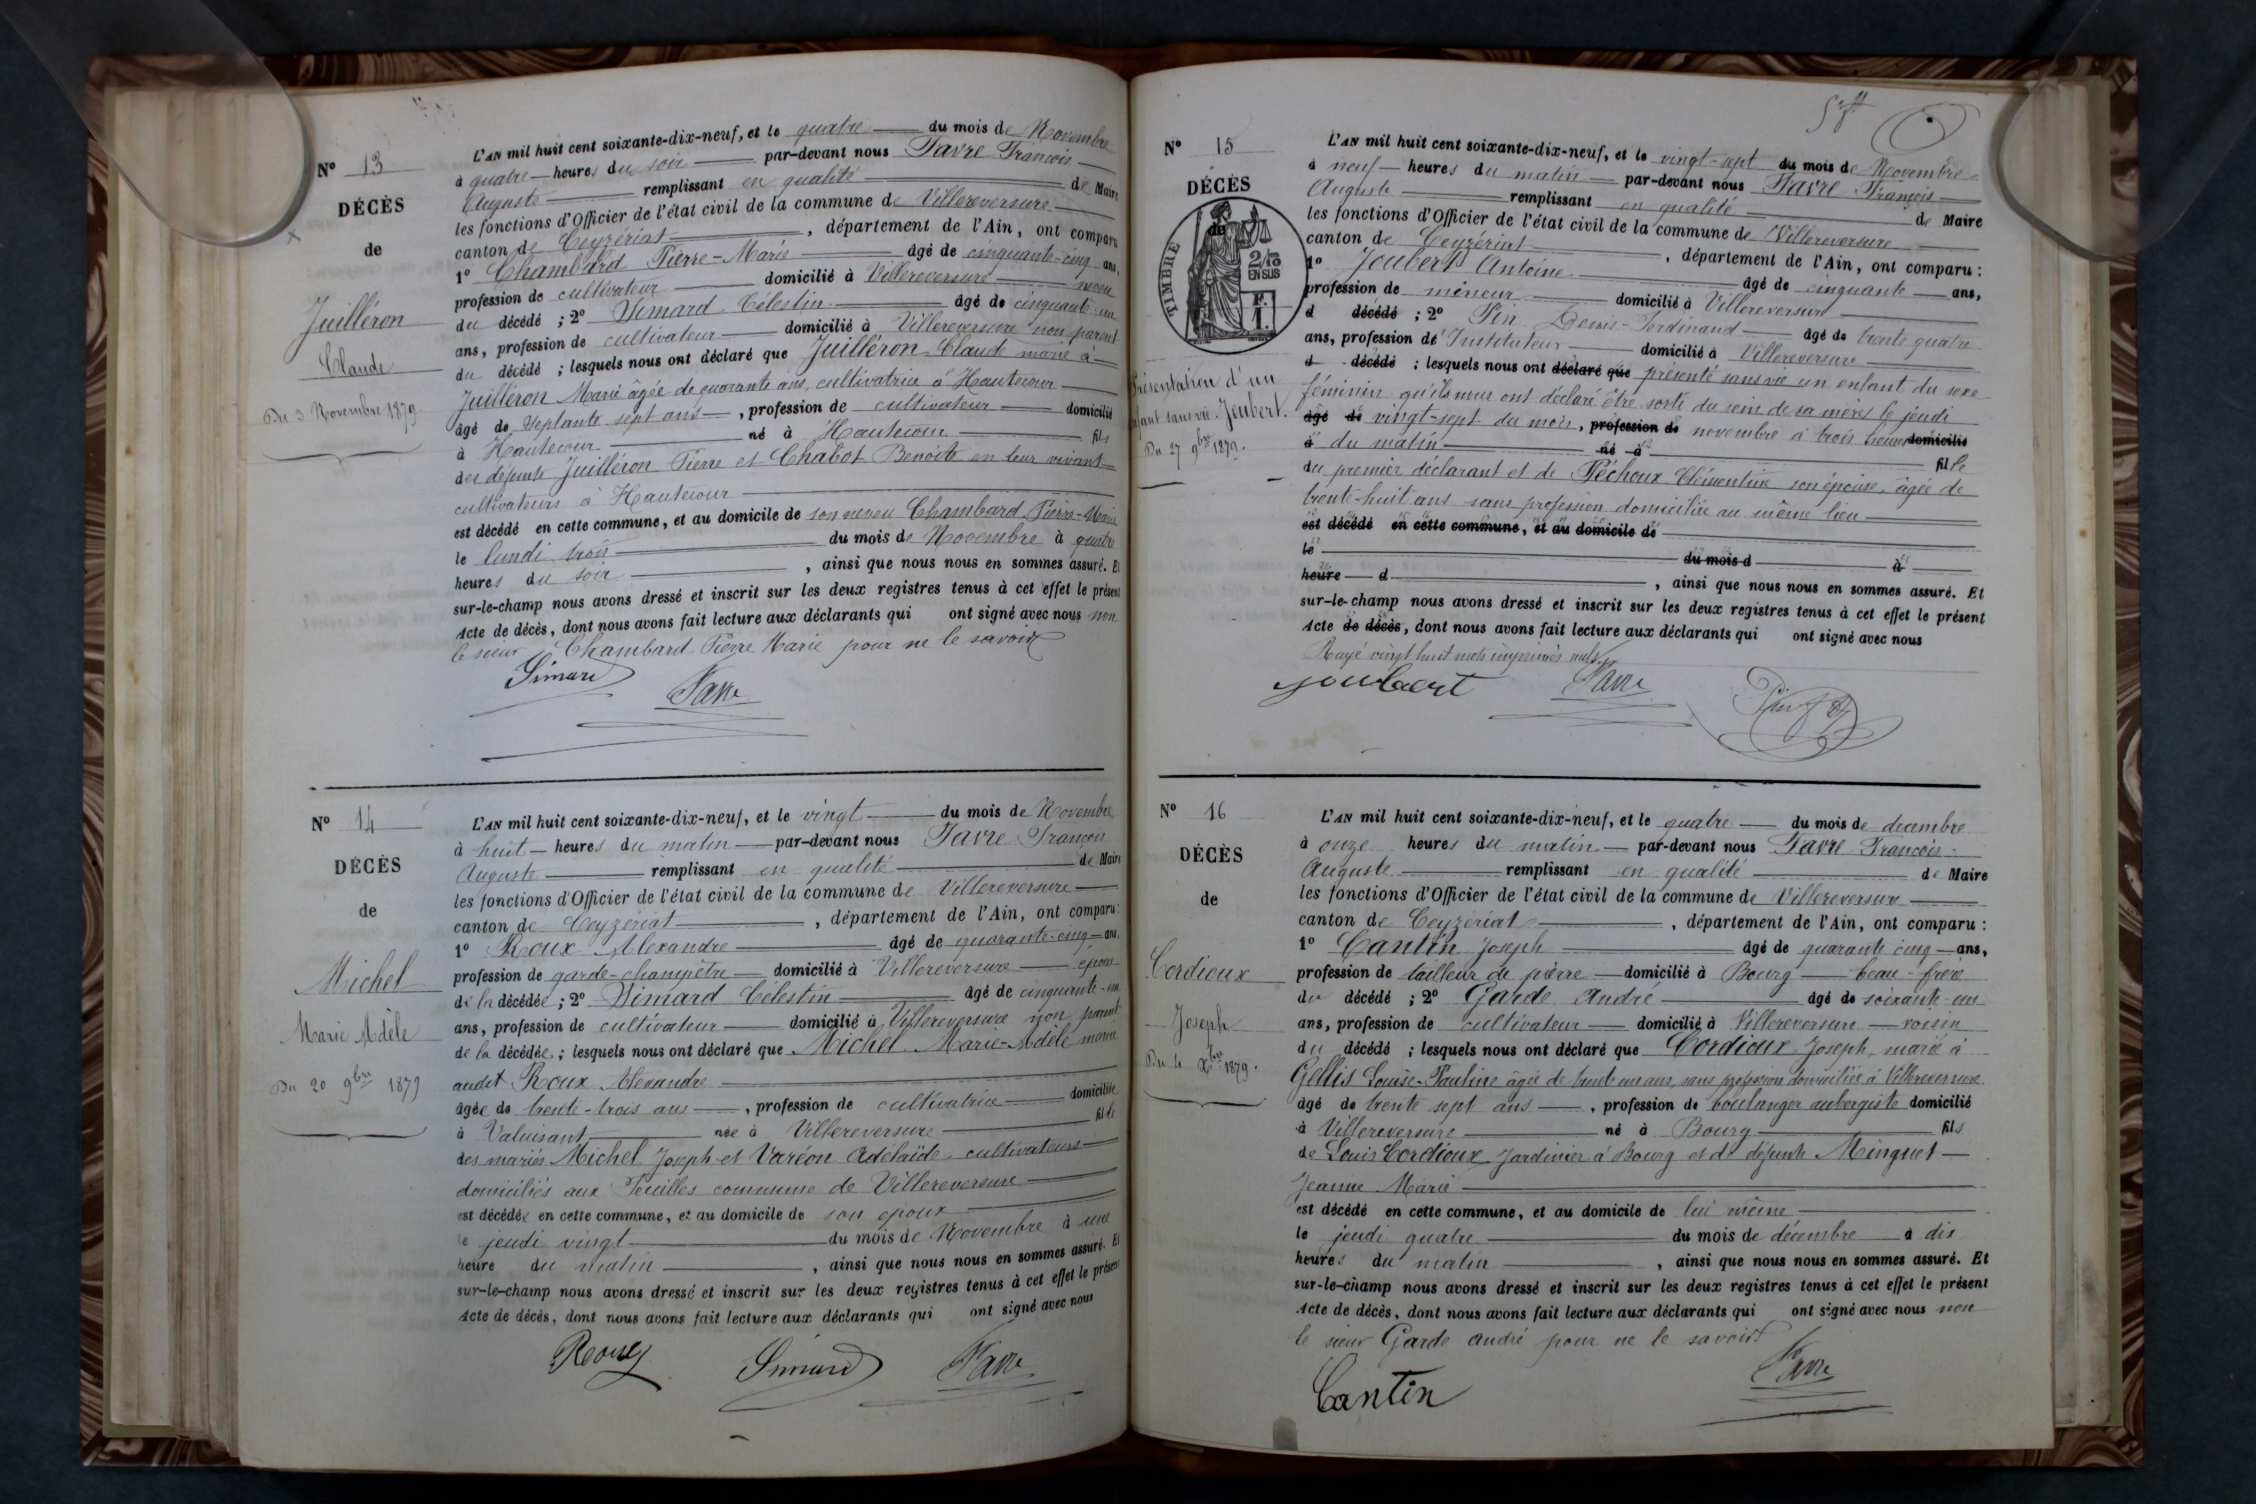 N° 13
DÉCÈS
de
Juilléron
Claude
Du 3 Novembre 1879
L'AN mil huit cent soixante-dix-neuf, et le quatre du mois de Novembre
à quatre heures du soir par-devant nous Favre François
Auguste remplissant en qualité de Maire
les fonctions d'Officier de l'état civil de la commune de Villereversure
canton de Ceyzériat, département de l'Ain, ont comparu
1° Chambard Pierre-Marie âgé de cinquante-cinq ans,
profession de cultivateur domicilié à Villereversure neveu
du décédé ; 2° Simard Célestin âgé de cinquante-un
ans, profession de cultivateur domicilié à Villereversure non parent
du décédé ; lesquels nous ont déclaré que Juilléron Claude marié à
Juilléron Marie âgée de quarante ans, cultivatrice à Hautecour
âgé de septante sept ans, profession de cultivateur domicilié
à Hautecour né à Hautecour fils
des défunts Juilléron Pierre et Chabot Benoite en leur vivant
cultivateurs à Hautecour
est décédé en cette commune, et au domicile de son neveu Chambard Pierre-Marie
le lundi trois du mois de Novembre à quatre
heures du soir, ainsi que nous nous en sommes assuré. Et
sur-le-champ nous avons dressé et inscrit sur les deux registres tenus à cet effet le présent
Acte de décès, dont nous avons fait lecture aux déclarants qui ont signé avec nous non
le sieur Chambard Pierre Marie pour ne le savoir
Simard Favre
N° 14
DÉCÈS
de
Michel
Marie Adèle
Du 20 9bre 1879
L'AN mil huit cent soixante-dix-neuf, et le vingt du mois de Novembre
à huit heures du matin par-devant nous Favre François
Auguste remplissant en qualité de Maire
les fonctions d'Officier de l'état civil de la commune de Villereversure
canton de Ceyzériat, département de l'Ain, ont comparu :
1° Roux Alexandre âgé de quarante-cinq ans,
profession de garde-champêtre domicilié à Villereversure époux
de la décédée ; 2° Simard Célestin âgé de cinquante-un
ans, profession de cultivateur domicilié à Villereversure non parent
de la décédée ; lesquels nous ont déclaré que Michel Marie-Adèle mariée
audit Roux Alexandre
âgée de trente-trois ans, profession de cultivatrice domiciliée
à Valuisant née à Villereversure fille
des mariés Michel Joseph et Varéon Adélaïde cultivateurs
domiciliés aux Feuilles commune de Villereversure
est décédée en cette commune, et au domicile de son époux
le jeudi vingt du mois de Novembre à une
heure du matin, ainsi que nous nous en sommes assuré. Et
sur-le-champ nous avons dressé et inscrit sur les deux registres tenus à cet effet le présent
Acte de décès, dont nous avons fait lecture aux déclarants qui ont signé avec nous
Roux Simard Favre
N° 15
DÉCÈS
de
TIMBRE
2/10
EN SUS
Présentation d'un
enfant sans vie Joubert.
Du 27 9bre 1879.
L'AN mil huit cent soixante-dix-neuf, et le vingt-sept du mois de Novembre
à neuf heures du matin par-devant nous Favre François
Auguste remplissant en qualité de Maire
les fonctions d'Officier de l'état civil de la commune de Villereversure
canton de Ceyzériat, département de l'Ain, ont comparu :
1° Joubert Antoine âgé de cinquante ans,
profession de mineur domicilié à Villereversure
d décédé ; 2° Pin Denis-Ferdinand âgé de trente quatre
ans, profession de Instituteur domicilié à Villereversure
d décédé ; lesquels nous ont déclaré que présenté sans vie un enfant du sexe
féminin qu'ils nous ont déclaré être sorti du sein de sa mère le jeudi
âgé de vingt-sept du mois, profession de novembre à trois heures domicilié
à du matin né à fille
du premier déclarant et de Péchoux Clémentine son épouse, âgée de
trente-huit ans sans profession domiciliée au même lieu
est décédé en cette commune, et au domicile de
le du mois d à
heure d, ainsi que nous nous en sommes assuré. Et
sur-le-champ nous avons dressé et inscrit sur les deux registres tenus à cet effet le présent
Acte de décès, dont nous avons fait lecture aux déclarants qui ont signé avec nous
Rayé vingt huit mots imprimés nuls
Joubert Favre Pin
N° 16
DÉCÈS
de
Cordioux
Joseph
Du 4 Xbre 1879.
L'AN mil huit cent soixante-dix-neuf, et le quatre du mois de decembre
à onze heures du matin par-devant nous Favre François
Auguste remplissant en qualité de Maire
les fonctions d'Officier de l'état civil de la commune de Villereversure
canton de Ceyzériat, département de l'Ain, ont comparu :
1° Cantin Joseph âgé de quarante cinq ans,
profession de tailleur de pierre domicilié à Bourg beau-frère
du décédé ; 2° Garde André âgé de soixante-un
ans, profession de cultivateur domicilié à Villereversure voisin
du décédé ; lesquels nous ont déclaré que Cordioux Joseph, marié à
Gellis Louise-Pauline âgée de trente un ans, sans profession domiciliée à Villereversure
âgé de trente sept ans, profession de boulanger aubergiste domicilié
à Villereversure né à Bourg fils
de Louis Cordioux Jardinier à Bourg et de défunte Minguet
Jeanne Marie
est décédé en cette commune, et au domicile de lui même
le jeudi quatre du mois de décembre à dix
heures du matin, ainsi que nous nous en sommes assuré. Et
sur-le-champ nous avons dressé et inscrit sur les deux registres tenus à cet effet le présent
Acte de décès, dont nous avons fait lecture aux déclarants qui ont signé avec nous non
le sieur Garde andré pour ne le savoir
Cantin Favre